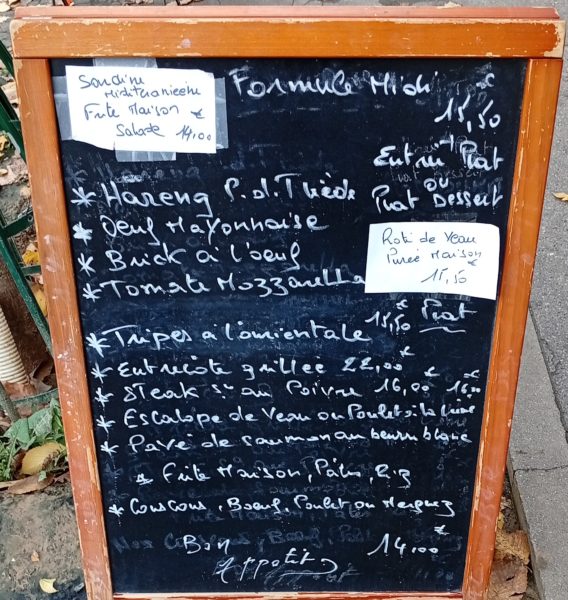 Sardine
Méditerranéenne
Frite Maison €
Salade 14,00
Formule Midi €
15,50
Entrée Plat
ou
Plat Dessert
* Hareng P.d.Tiède
* Oeuf Mayonnaise
* Brick à l'oeuf
* Tomate Mozzarella
Roti de Veau
Purée Maison €
15,50
* Tripes à l'orientale 15,50 € Plat
* Entrecôte grillée 22,00 €
* Steak s. au Poivre 16,00 € 16,00
* Escalope de Veau ou Poulet à la
* Pavé de saumon au beurre blanc
* Frite Maison, Riz
* Couscous, Boeuf, Poulet ou Merguez
Bon 14,00 €
Appetit